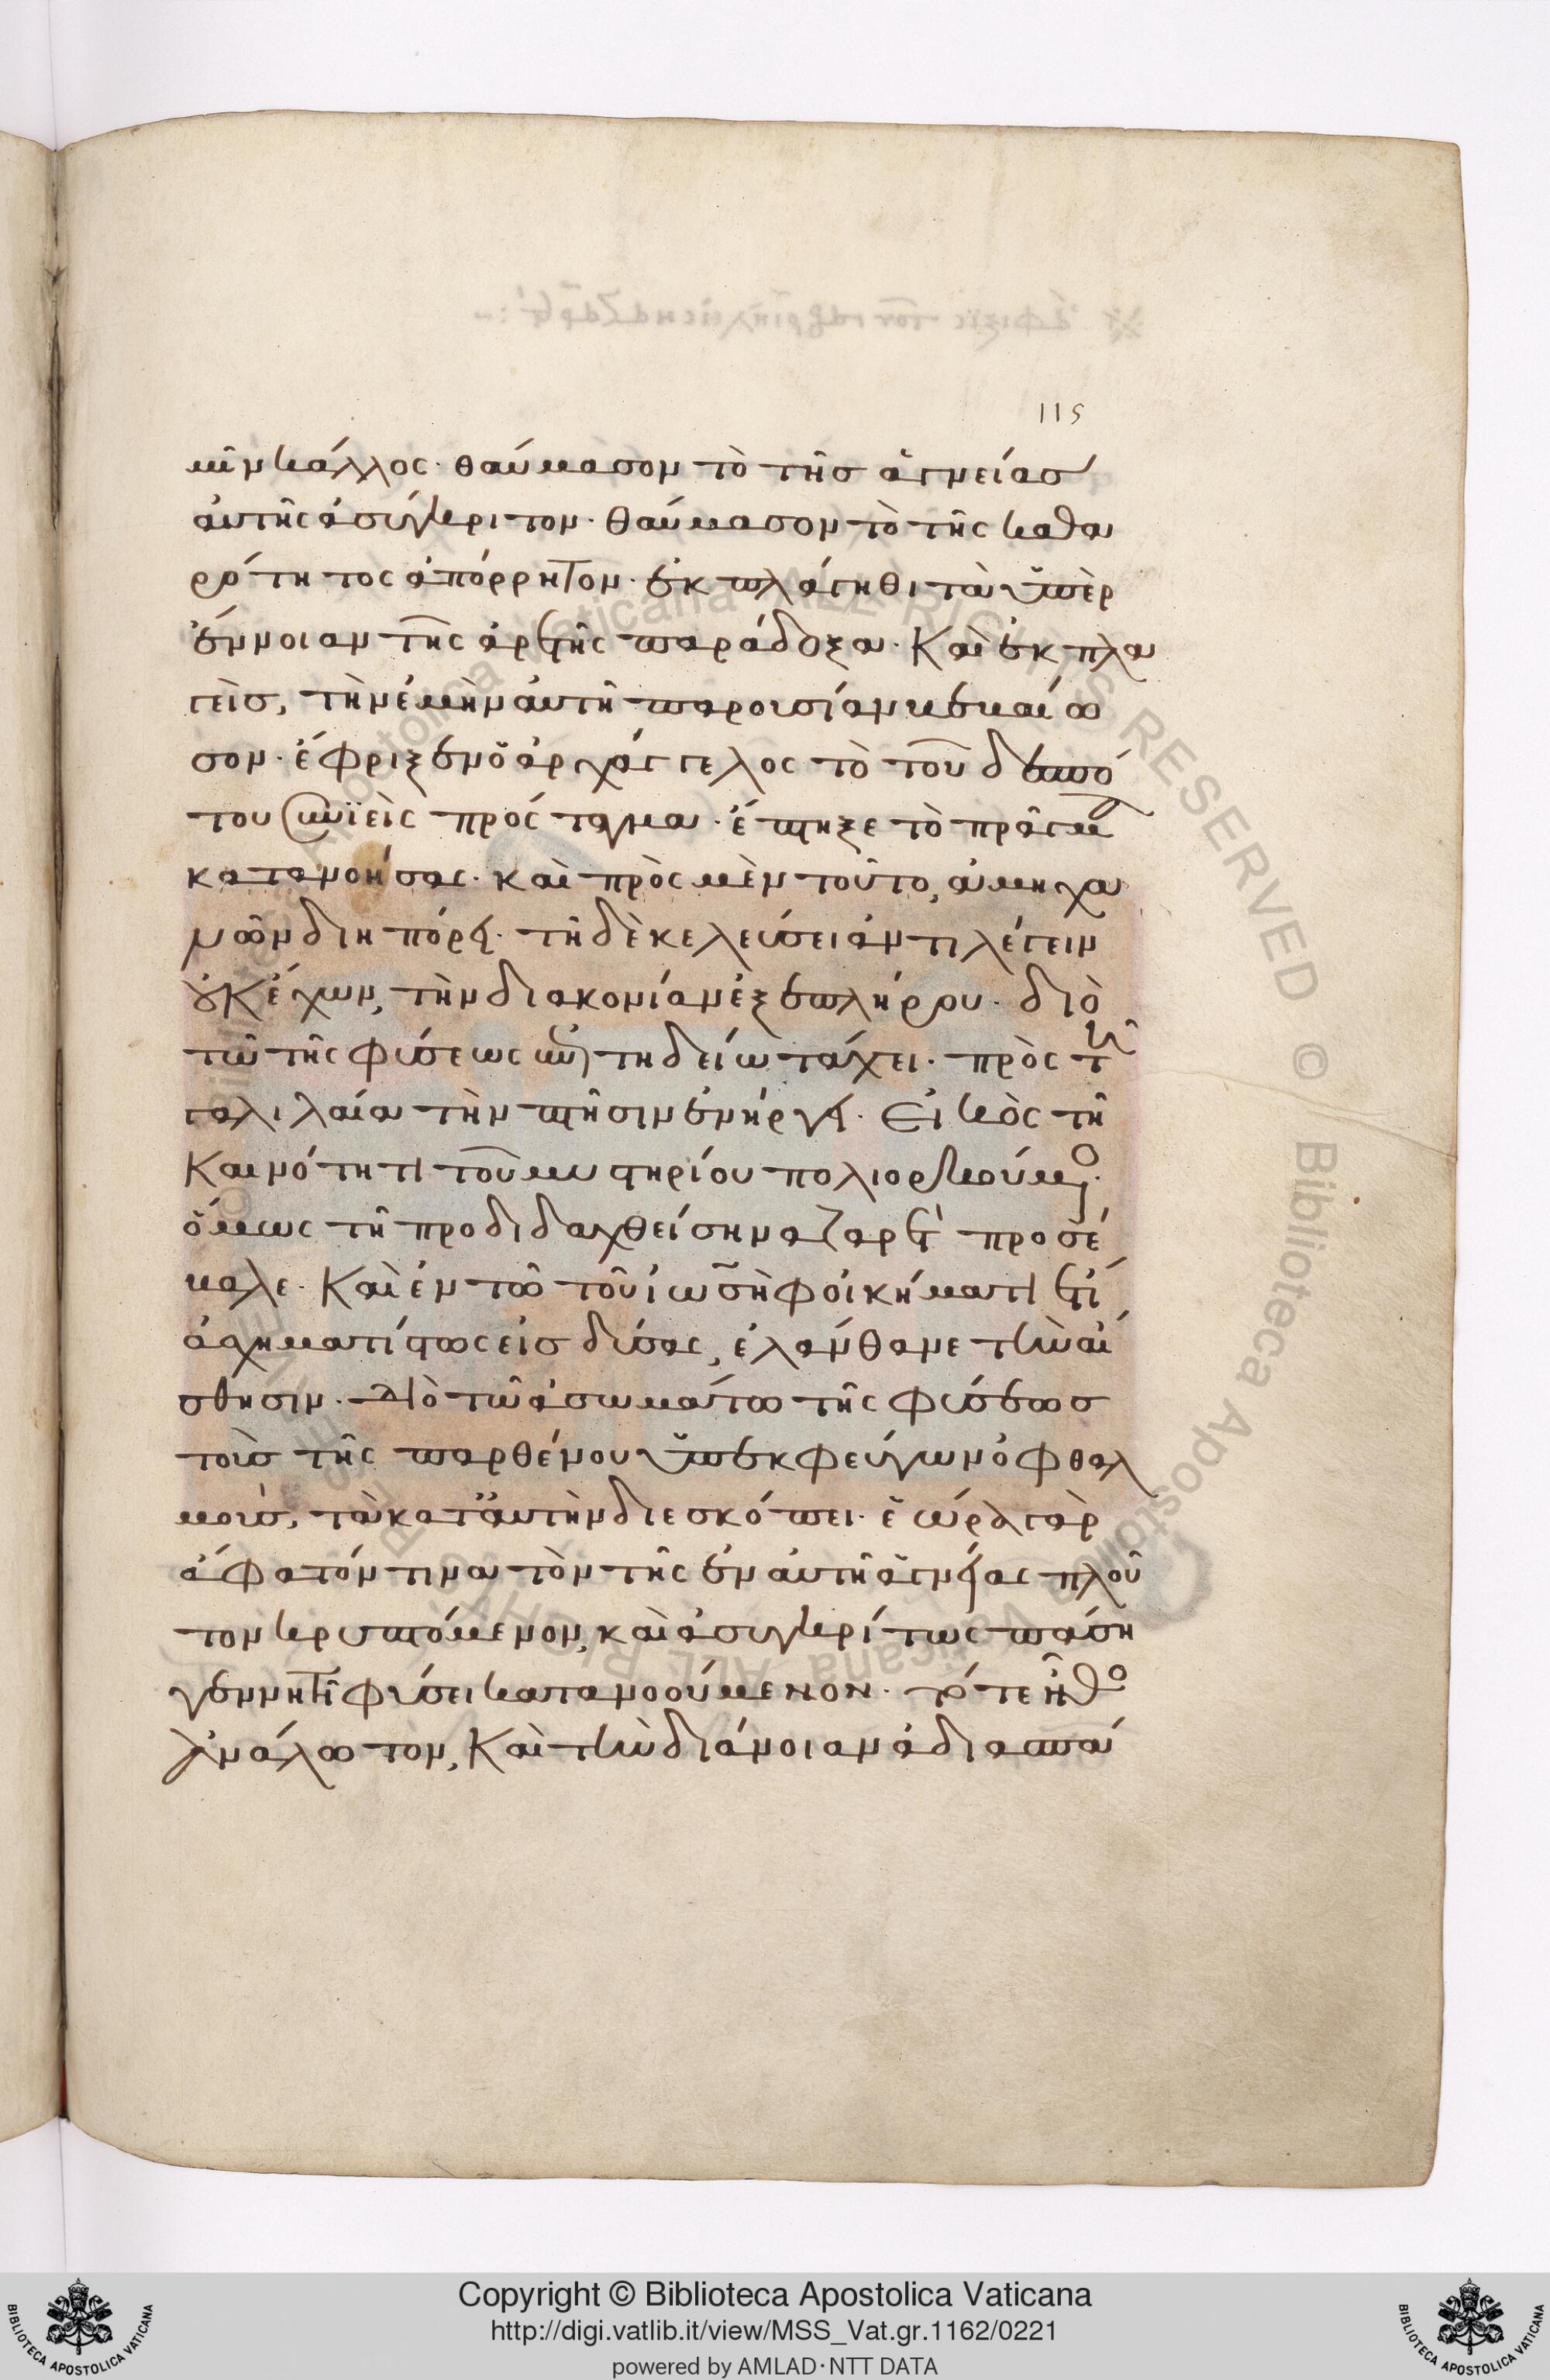 115
μῖν κάλλος· θαύμασον τὸ τῆς ἁγνείας
αὐτῆς ἀσύγκριτον· θαύμασον τὸ τῆς καθα
ρότητος ἀπόρρητον· ἐκπλάγηθι τὰ ὑπὲρ
ἔννοιαν τῆς ἀρετῆς παράδοξα· Καὶ ἐκπλα
γεὶς, τὴν ἐμὴν αὐτῆ παρουσίαν
σον· ἔφριξεν ὁ ἀρχάγγελος τὸ τοῦ δεσπό
του συνιεὶς πρόσταγμα· ἔπτηξε τὸ πρᾶγμα
κατανοήσας· καὶ πρὸς μὲν τοῦτο, ἀμηχα
νῶν διηπόρει· τῆ δὲ κελεύσει ἀντιλέγειν
οὐκ ἔχων, τὴν διακονίαν ἐξεπλήρου· διὸ
τῶ τῆς φύσεως ἐπιτηδείω τάχει· πρὸς τὴν
γαλιλαίαν τὴν πτῆσιν ἐνήργει· Εἰκὸς τῆ
Καινότητι τοῦ μυστηρίου πολιορκούμενος·
ὅμως τῆ προδιδαχθείση ναζαρὲτ προσέ
βαλε· Καὶ ἐν τῶ τοῦ ἰωσὴφ οἰκήματι ἔτι
ἀσχηματίστως εἰσδύσας, ἐλάνθανε τὴν αἴ
σθησιν· Διὸ τῶ ἀσωμάτω τῆς φύσεως
τοὺς τῆς παρθένου ὑπεκφεύγων ὀφθαλ
μοὺς, τὰ κατ' αὐτὴν διεσκόπει· ἑώρα γὰρ
ἄφατόν τινα τὸν τῆς ἐν αὐτῆ ἁγνείας πλοῦ
τον κρυπτόμενον, καὶ ἀσυγκρίτως πάση
γεννητῆ φύσει κατανοούμενον· τό τε ἦθος
ἀνάλωτον, Καὶ τὴν διάνοιαν ἀδιασπα
Copyright © Biblioteca Apostolica Vaticana
http://digi.vatlib.it/view/MSS_Vat.gr.1162/0221
powered by AMLAD·NTT DATA
BIBLIOTECA APOSTOLICA VATICANA
BIBLIOTECA APOSTOLICA VATICANA